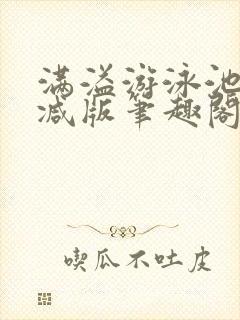 满溢游泳池
减版笔趣阁
喫瓜不吐皮